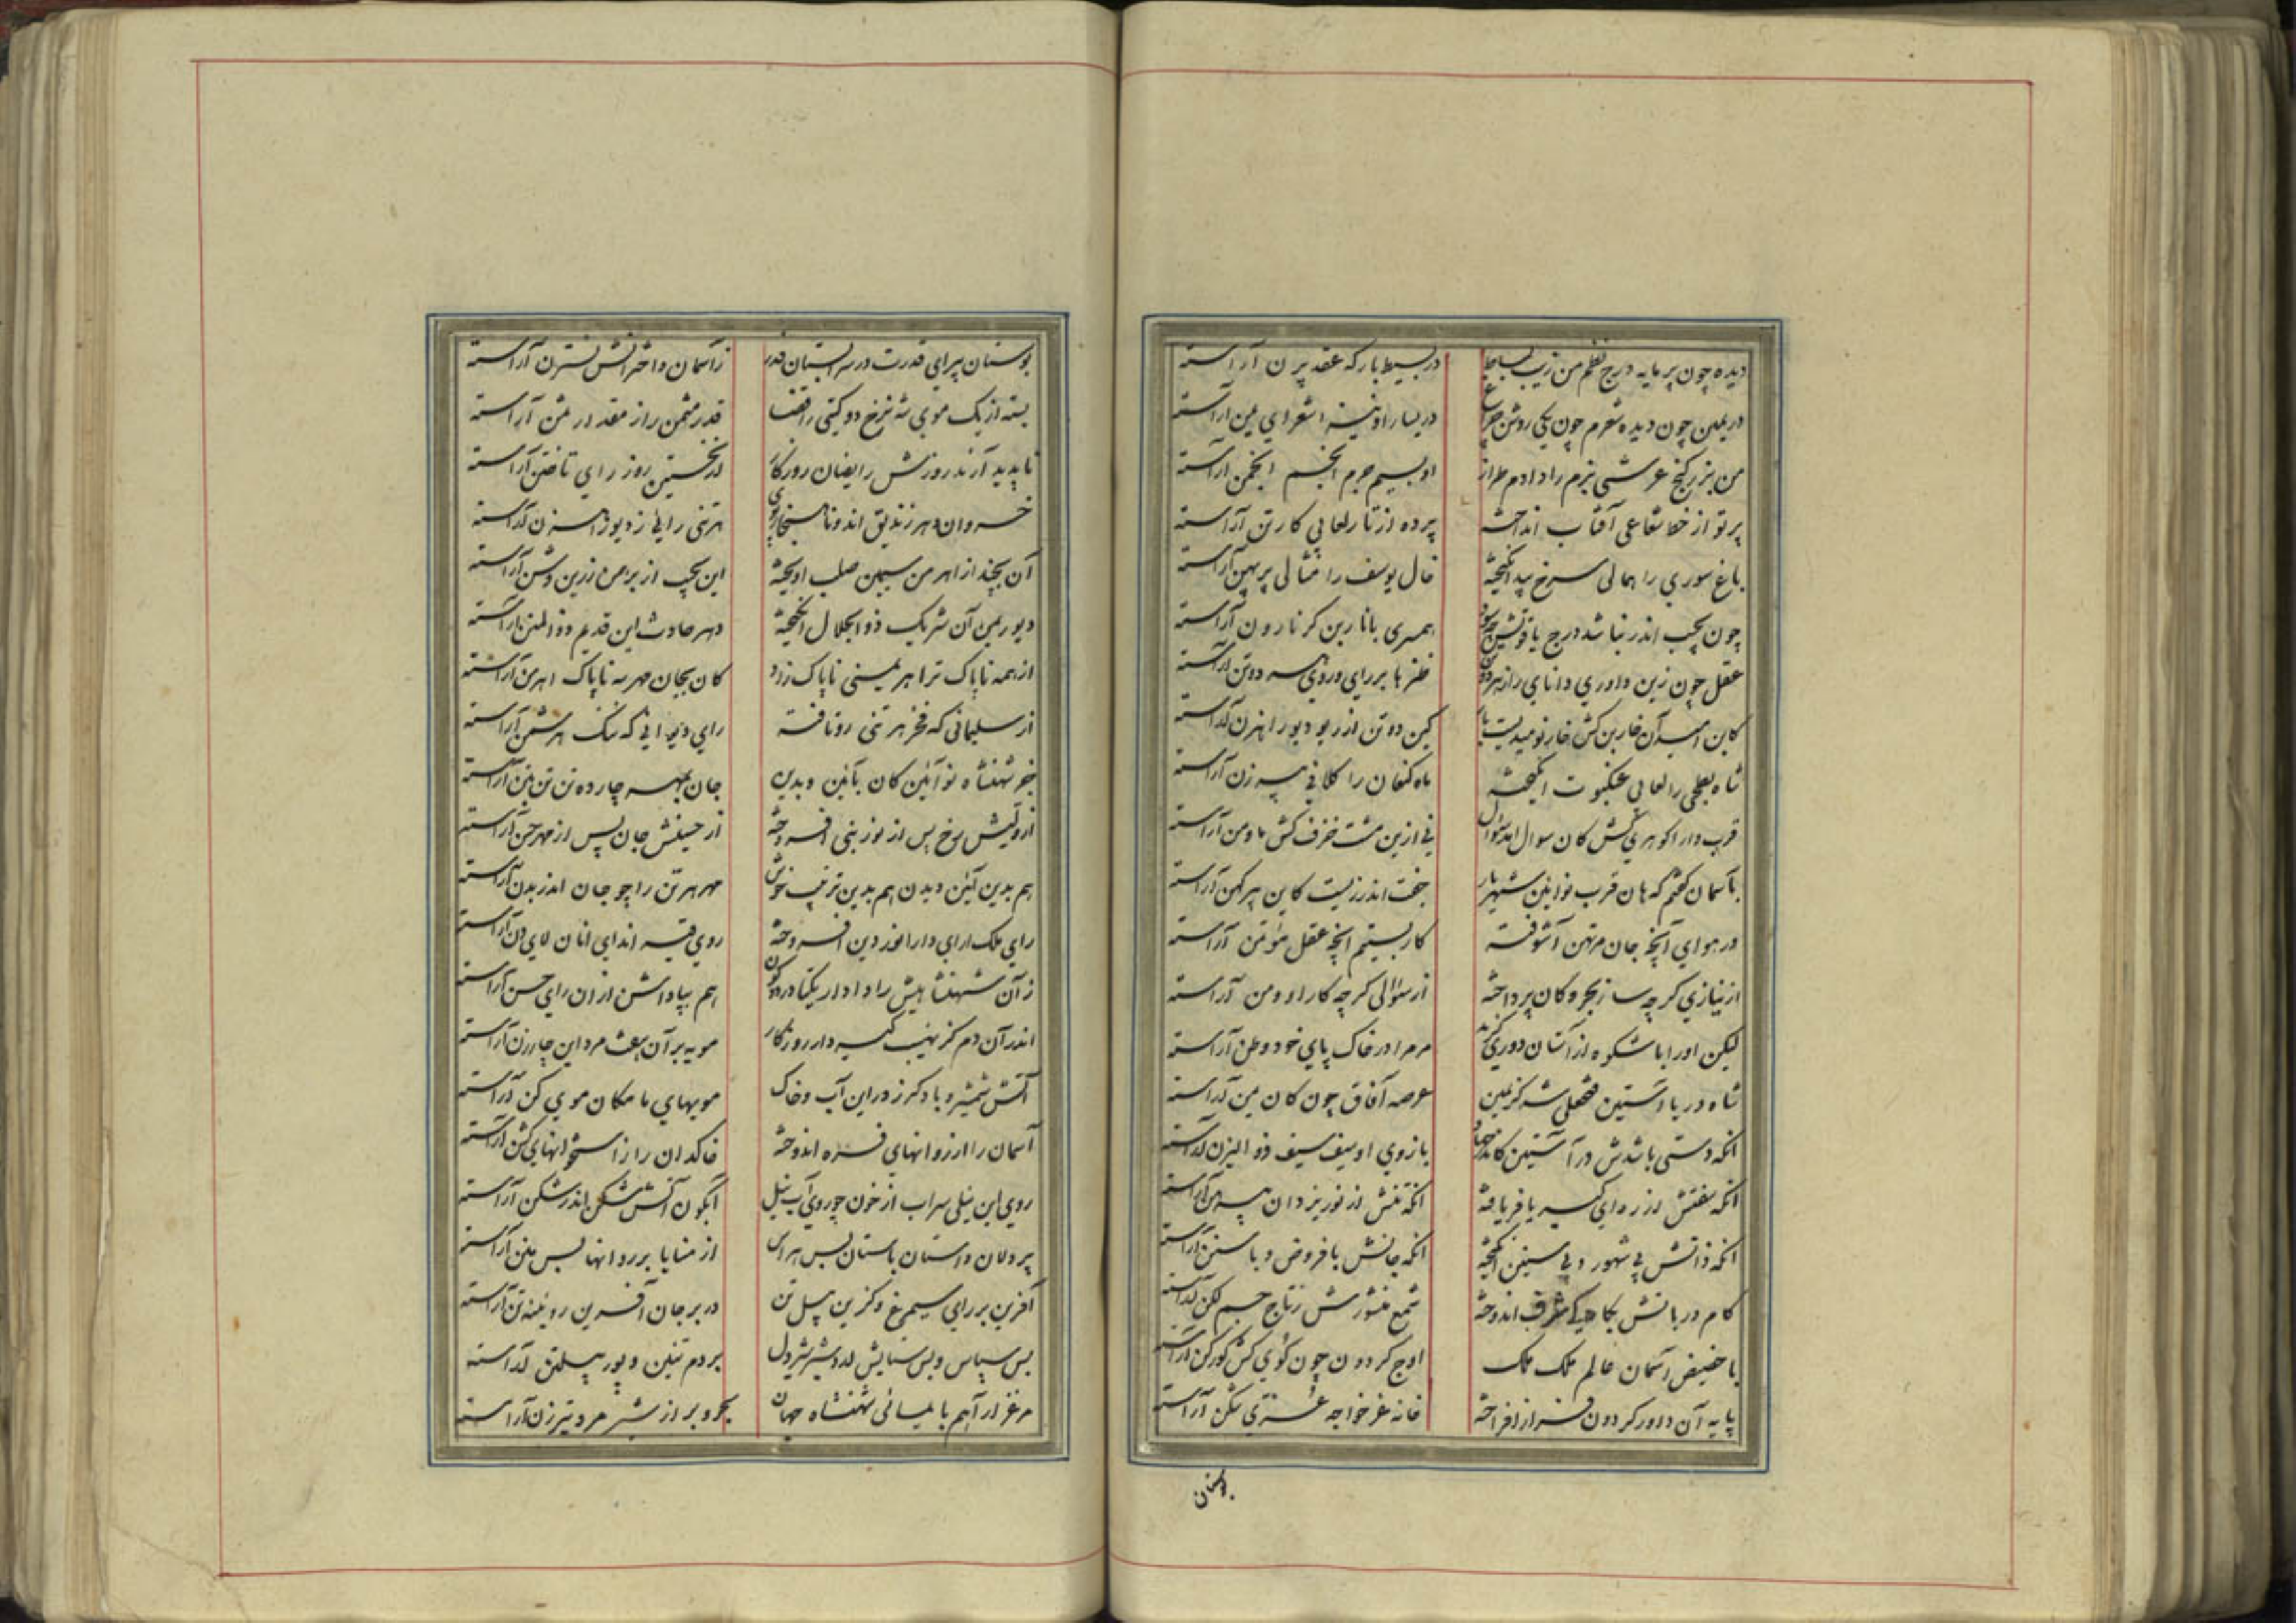 دیده چون پر مایه درج نظم من زیب بساط
در بسیط بارکه عقد پرن آراسته
در یمین چون دیده شعرم چون یکی روشن چراغ
در یسار او اشعرای یمن آراسته
من بزر کنج عرشی بزم را دادم طراز
او بسیم جرم انجم انجمن آراسته
پرتو از خط شعاعی آفتاب انداخته
پرده از تار لعابی کارتن آراسته
باغ سوری را همالی سرخ بید انکیخته
خال یوسف را مثالی پرپهن آراسته
چون بچپ اندر نباشد درج یاقوتیش
همسری با نار بن کر نارون آراسته
عقل چون زین داوری دانای راز
طنزها بر رای و روی دوتن آراسته
کاین آن خار بن کش خار نومیدیست بار
کین دو تن از ریو دیو راهزن آراسته
شاه بطحی را لعابی عنکبوت انکیخته
ماه کنعان را کلافی پیرزن آراسته
قرب دارا کوهری کش کان سوال اندر سوال
نی ازین مشت خزف کش ما و من آراسته
بآسمان کفتم که هان قرب نوایین شهریار
جفت اندرزیست کاین پیر کهن آراسته
در هوای آنچه جان مرتهن آشوفته
کار بستیم آنچه عقل مؤتمن آراسته
از نیازی کرچه ساز بحر و کان پرداخته
از سؤالی کرچه کار او و من آراسته
لیکن او را با شکوه از آستان دوری
مر مرا در خاک پای خود وطن آراسته
شاه دریا آستین فتحعلی شه کز یمین
عرصه آفاق چون کان یمن آراسته
انکه دستی باشدش در آستین
بازوی او سیف سیف ذو الیزن آراسته
انکه سفتش از ردای کبریا فر یافته
انکه تنش از نور یزدان پیرهن آراسته
انکه ذاتش بی شهور و بی سنین انکیخته
انکه جانش با فروض و با سنن آراسته
کام دربانش بکا شرف اندوخته
شمع منشورش ز تاج جم لکن آراسته
با حضیض آسمان عالم ملک ملک
اوج کردون چون کوی کش کورکن آراسته
پایه آن داور کردون فراز افراخته
خانه عز خواجه عشرتی شکن آراسته
بوستان
بوستان پیرای قدرت در سرابستان قدر
ز آسمان و اخترانش نسترن آراسته
بسته از یک موی شه نرخ دو کیتی را قضا
قدر مثمن را ز مقدار ثمن آراسته
ناپدید آرند روزش رایضان روزکار
از نخستین روز رای تاختن آراسته
خسروان دهر زندیق اند و ناهنجار پوی
هر تنی رایی ز دیو راهزن آراسته
آن بچند از اهرمن سیمین صلب اویخته
این بچپ از برهمن زرین وثن آراسته
دیو ریمن آن شریک ذو الجلال انکیخته
دهر حادث این قدیم ذو المنن آراسته
از همه ناپاک تر اهریمنی ناپاک زاد
کان بجان مهر سه ناپاک اهرمن آراسته
از سلیمانی که فخر هر تنی رو تافته
رای دیوانی که ننک آراسته
جز شهنشاه نوآیین کان بآیین و بدین
جان بمهر چارده تن آراسته
از ولیش رخ پس از نور نبی افروخته
از حسینش جان پس از مهر حسن آراسته
هم بدین آیین و دین هم بدین ترتیب خوش
مهر هر تن را چو جان اندر بدن آراسته
رای ملک ارای دارا نور دین افروخته
روی قیر اندای انان لای دن آراسته
ز آن شهنشاهیش را دادار یکتا در دو کون
هم بپاداش از ان رای حسن آراسته
اندر آن دم کز نهیب کیر دار روزکار
مویه بر آن هفت مرد این چار زن آراسته
آتش شمشیر و باد کرز در این آب و خاک
مویهای مامکان موی کن آراسته
آسمان را از روانهای فسرده اندوخته
خاکدان را ز استخوانهای کشن آراسته
روی این نیلی سراب از خون چو روی آب نیل
آبکون آتش شکن اندر شکن آراسته
پر دلان داستان باستان بس
از منایا بر روانها بس محن آراسته
آفرین بر رای سیمرغ و کزین پیل تن
در بر جان آفرین رویینه تن آراسته
بس سپاس و بس ستایش از دو شیر شیردل
بر دم تنین و پور پیلتن آراسته
مرغزار آهم با یلسانی شهنشاه جهان
بحر و بر از شیر مرد و تیرزن آراسته